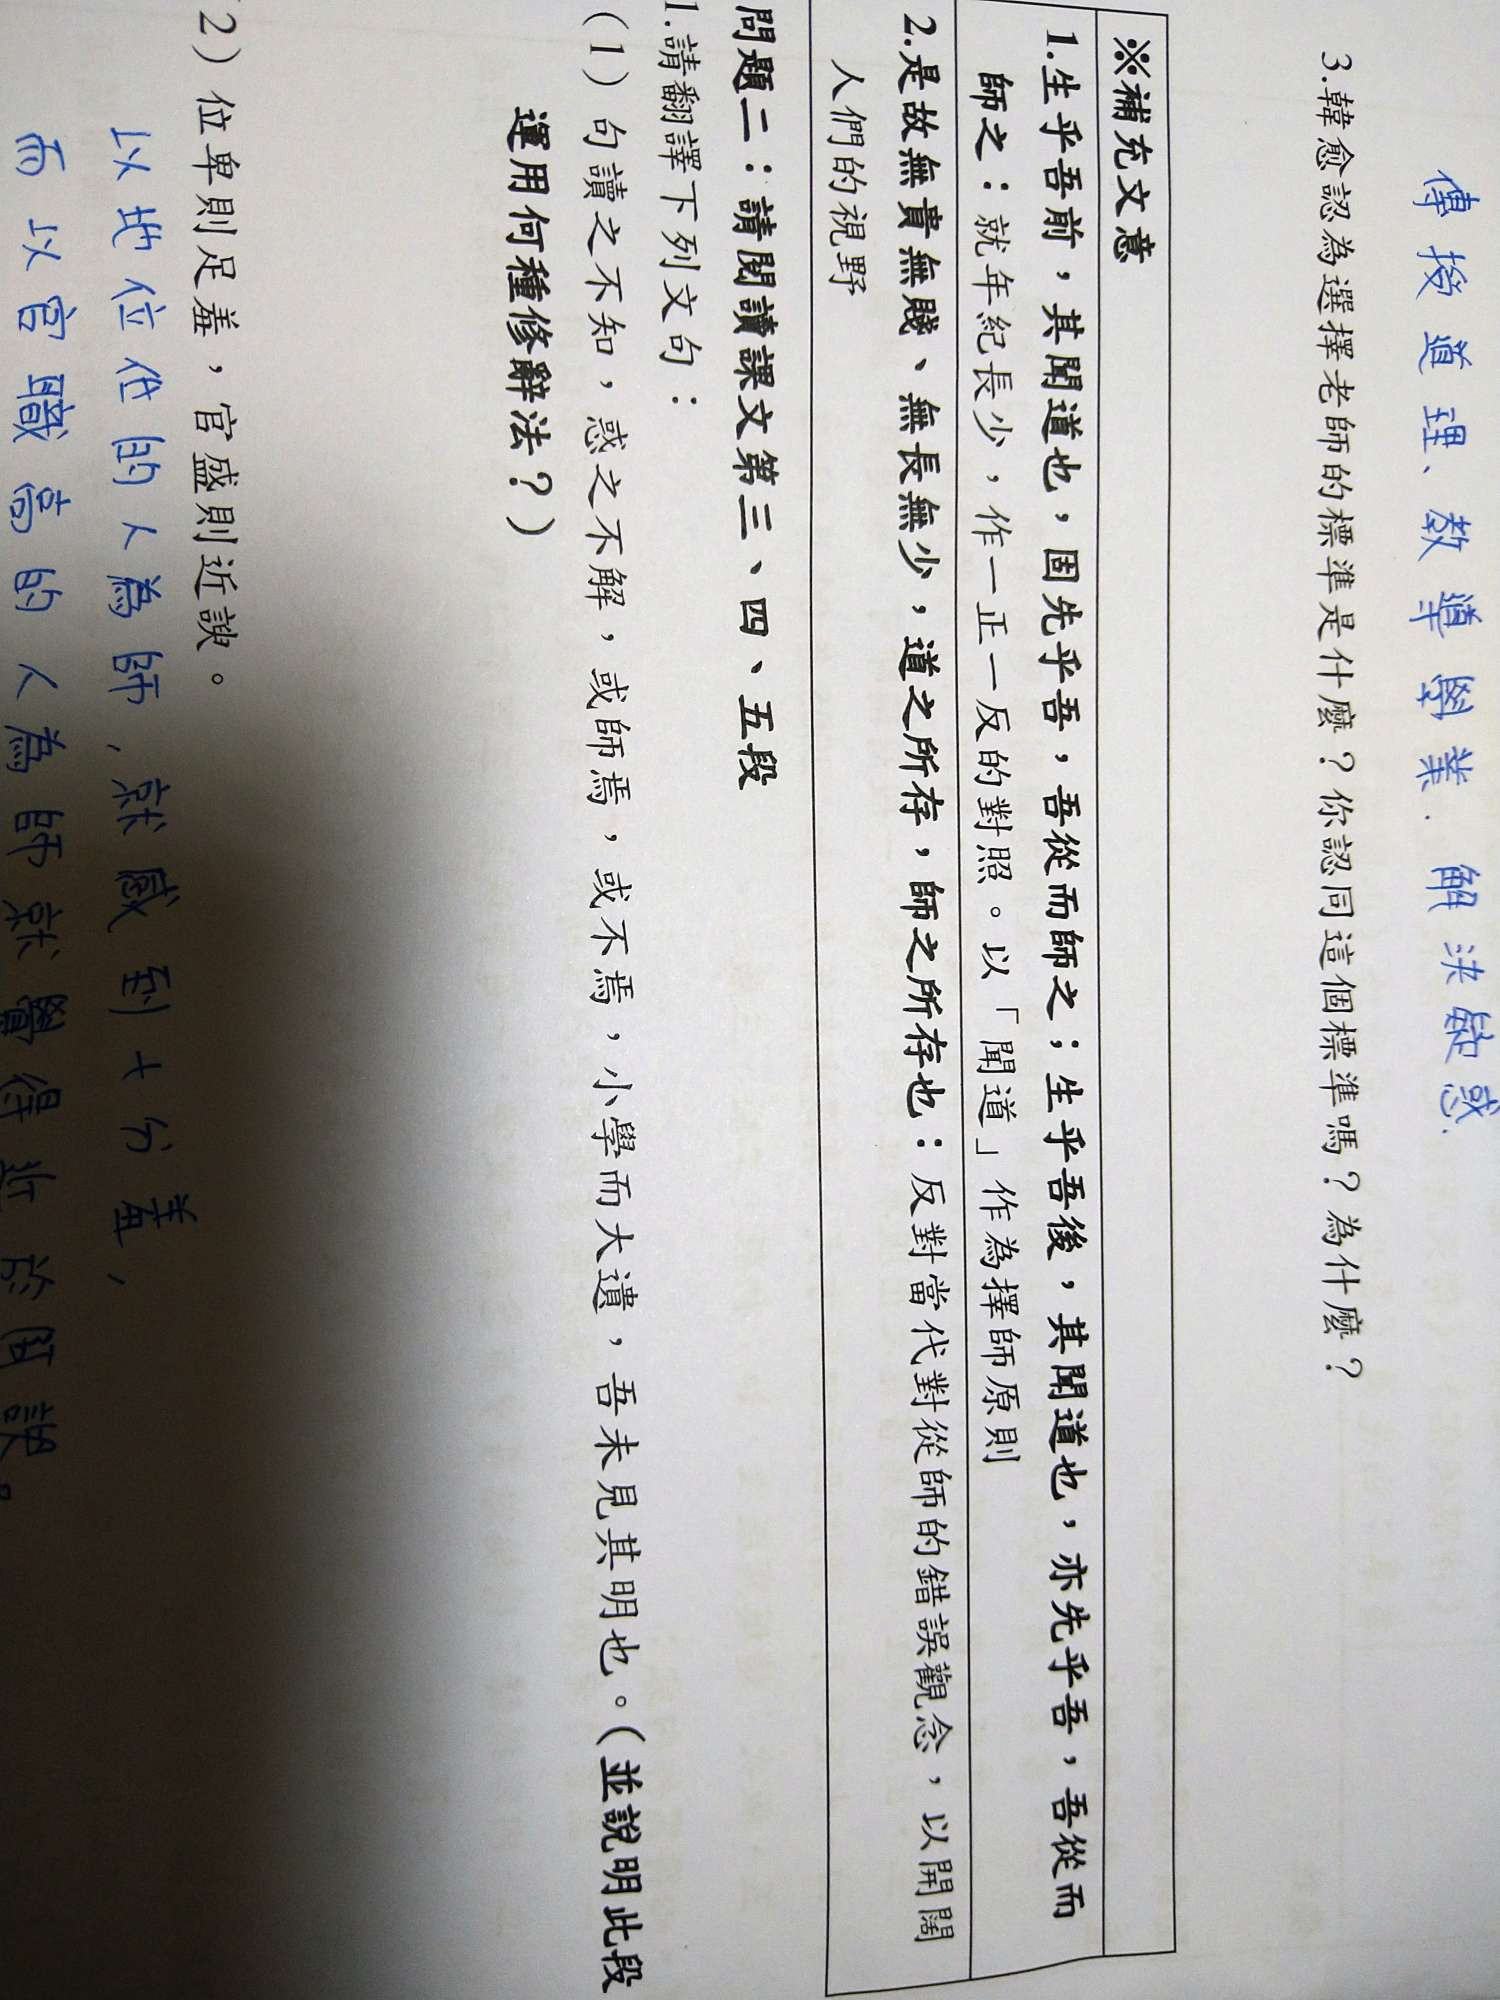 傳授道理、教導學業. 解決疑惑.
3.韓愈認為選擇老師的標準是什麼？你認同這個標準嗎？為什麼？
※補充文意
1.生乎吾前，其聞道也，固先乎吾，吾從而師之；生乎吾後，其聞道也，亦先乎吾，吾從而
師之：就年紀長少，作一正一反的對照。以「聞道」作為擇師原則
2.是故無貴無賤、無長無少，道之所存，師之所存也：反對當代對從師的錯誤觀念，以開闊
人們的視野
問題二：請閱讀課文第三、四、五段
1.請翻譯下列文句：
（1）句讀之不知，惑之不解，或師焉，或不焉，小學而大遺，吾未見其明也。（並說明此段
運用何種修辭法？）
2）位卑則足羞，官盛則近諛。
以地位低的人為師,就感到十分羞,
而以官職高的人為師就覺得近於